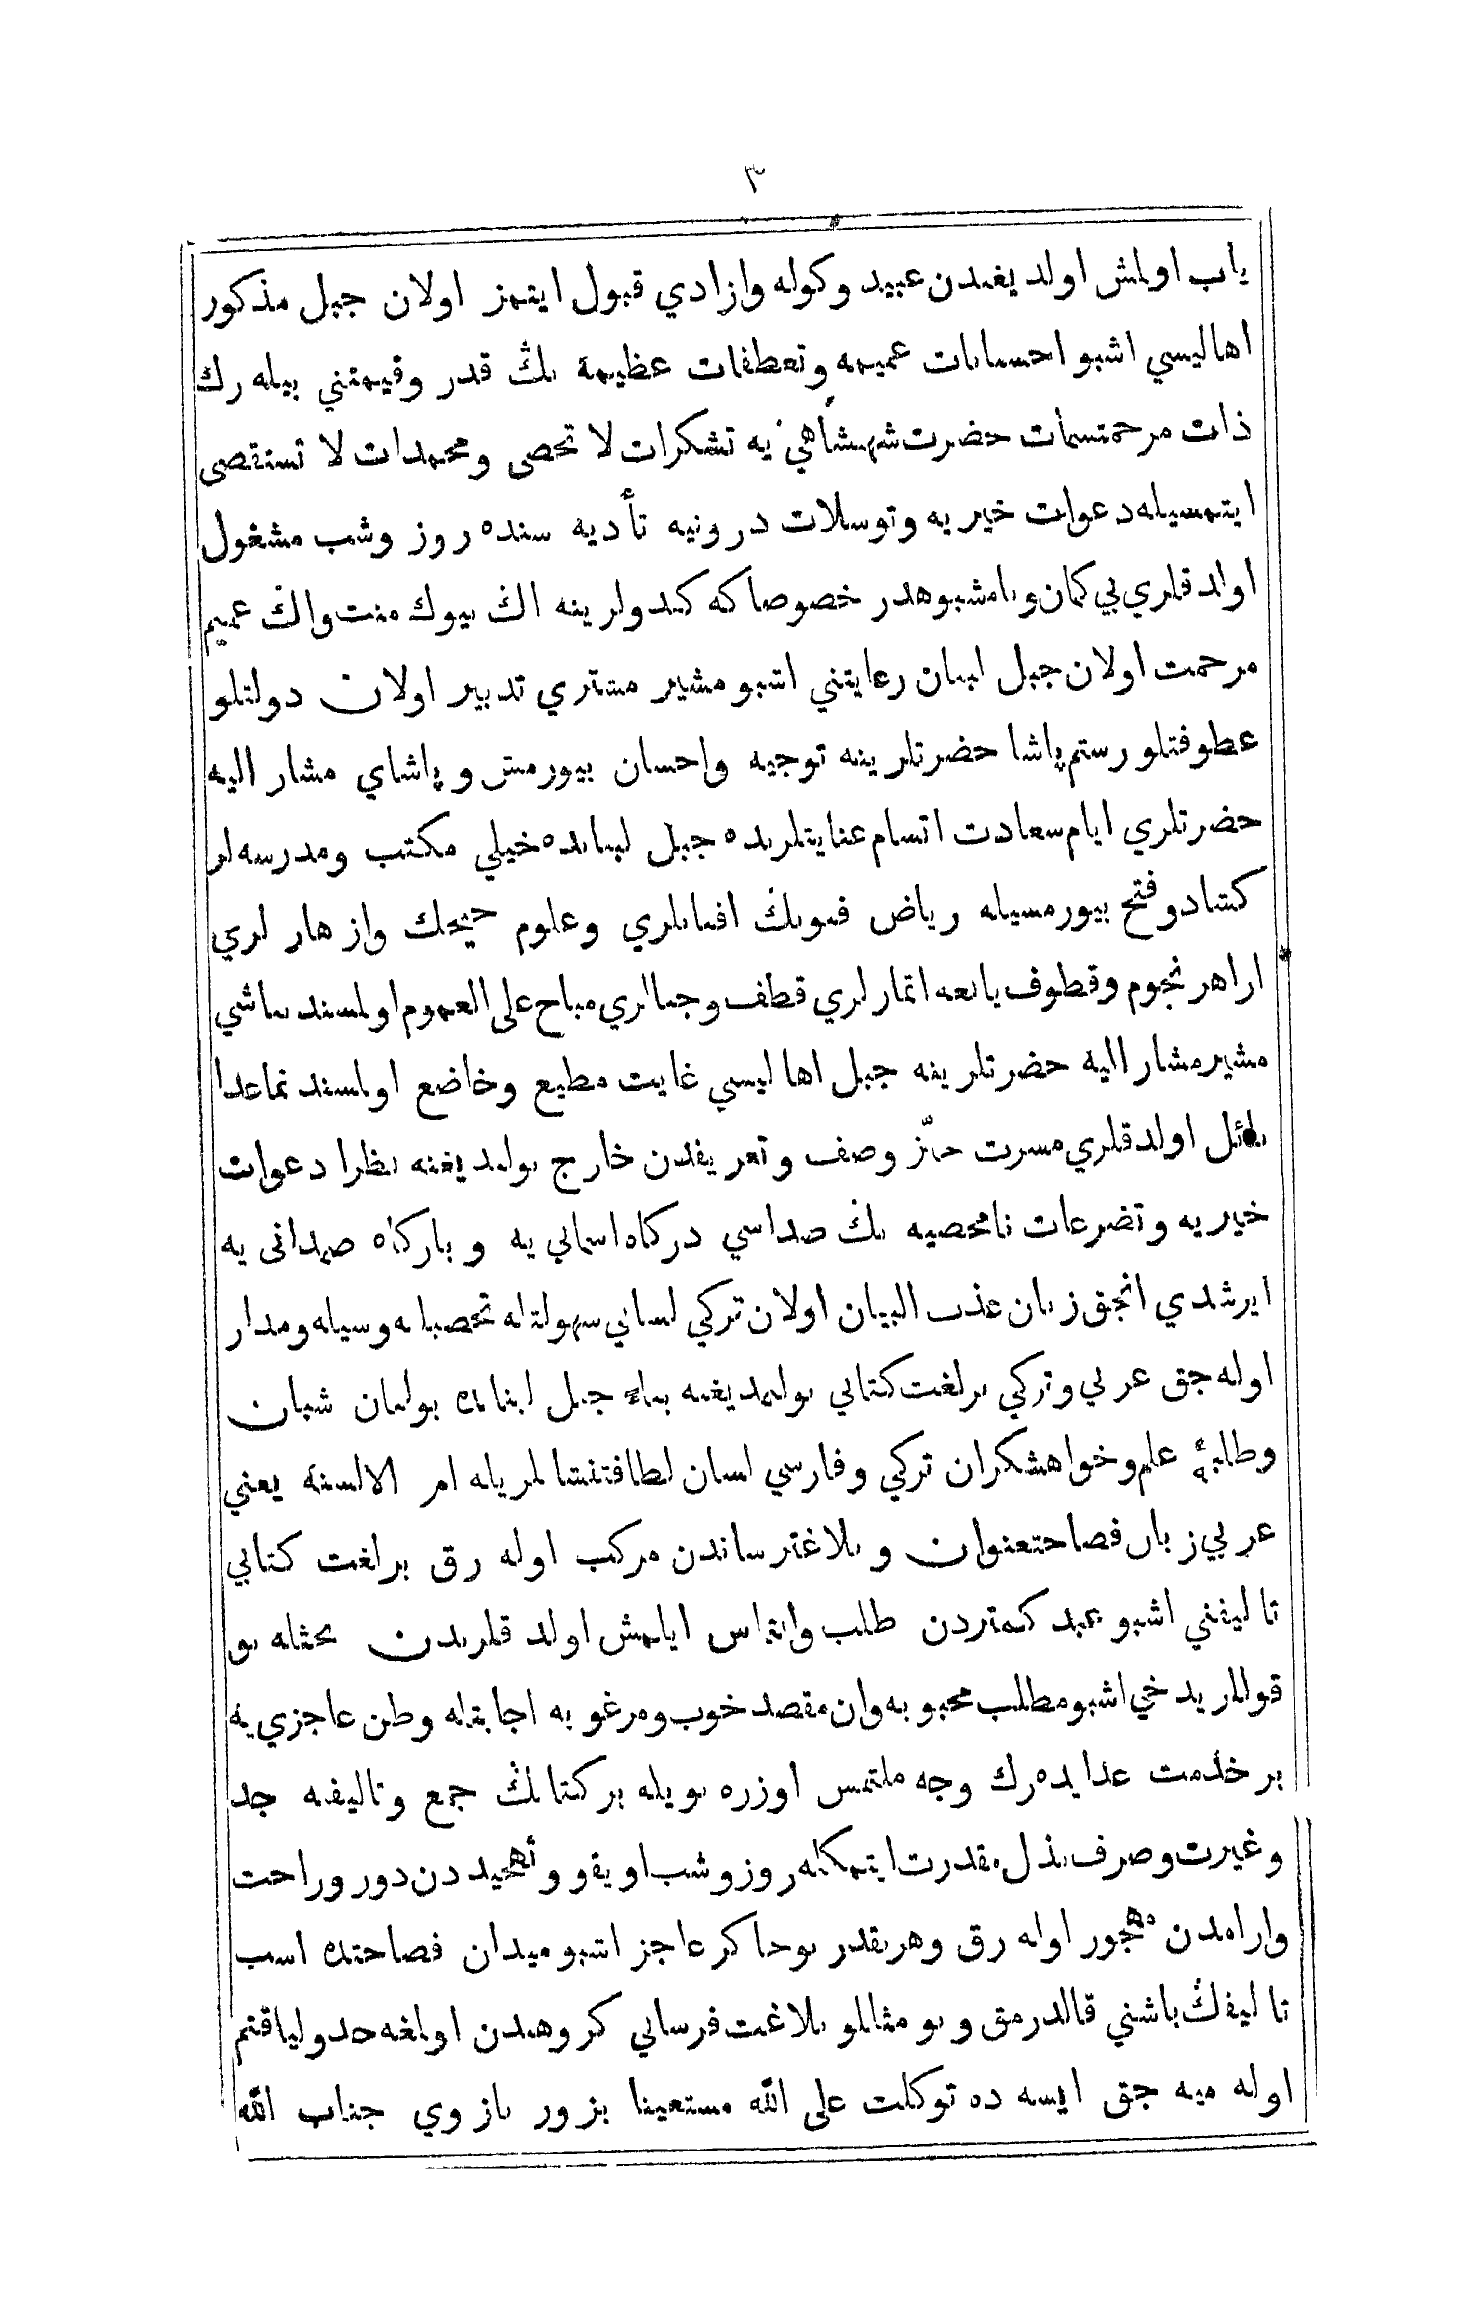 ٣
ياب اولمش اولديغندن عبيد وكوله وازادي قبول ايتمز اولان جبل مذكور
اهاليسي اشبو احسانات عميمه وتعطفات عظيمة نڭ قدر وقيمتني بيله رك
ذات مرحمتسمات حضرت شهنشاهي يه تشكرات لا تحصى ومحمدات لا تستقصى
ايتمسيله دعوات خيريه وتوسلات درونيه تأديه سنده روز وشب مشغول
اولدقلري بي كمان ونامشبوهدر خصوصا كه كندولرينه اڭ بيوك منت واڭ عميم
مرحمت اولان جبل لبنان رعايتني اشبو مشير مشتري تدبير اولان دولتلو
عطوفتلو رستم پاشا حضرتلرينه توجيه واحسان بيورمش و پاشاي مشار اليه
حضرتلري ايام سعادت اتسام عنايتلرنده جبل لبنانده خيلي مكتب ومدرسه لر
كشاد وفتح بيورمسيله رياض فنونڭ افنانلري وعلوم چيچك وازهار لري
ازاهر نجوم وقطوف يانعه اثمار لري قطف وجنالري مباح على العموم اولمسندناشي
مشير مشار اليه حضرتلرينه جبل اهاليسي غايت مطيع وخاضع اولمسندنماعدا
نائل اولدقلري مسرت حيّز وصف وتعريفدن خارج بولنديغنه نظرا دعوات
خيريه وتضرعات نامحصيه نڭ صداسي دركاه اسماني يه و باركاه صمداني يه
ايرشدي انجق زبان عذب البيان اولان تركي لساني سهولتله تحصيلنه وسيله ومدار
اوله جق عربي وتركي برلغت كتابي بولنمديغنه بناءً جبل لبنانده بولنان شبان
وطلبهٔ علم وخواهشكران تركي وفارسي لسان لطافتنشانلريله ام الالسنه يعني
عربي زبان فصاحتعنوان و بلاغترساندن مركب اوله رق برلغت كتابي
تاليفني اشبو عبد كمتردن طلب والتماس ايلمش اولدقلرندن بحثله بو
قوللريدخي اشبو مطلب محبوبه وان مقصد خوب ومرغوبه اجابتله وطن عاجزي يه
بر خدمت عدايده رك وجه ملتمس اوزره بويله بر كتابڭ جمع وتاليفنه جد
وغيرت وصرف بذل مقدرت ايتمكله روز وشب اويقو وتهجيددن دور وراحت
وارامدن مهجور اوله رق وهرنقدر بو چاكر عاجز اشبو ميدان فصاحتده اسب
تاليفڭ باشني قالدرمق وبو مثاللو بلاغت فرساني كروهندن اولمغه حدولياقتم
اوله ميه جق ايسه ده توكلت على الله مستعينا بزور بازوي جناب الله